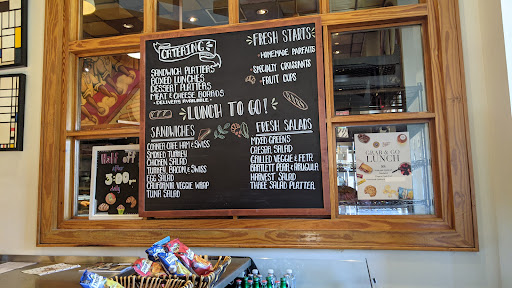 CATERING
SANDWICH PLATTERS
BOXED LUNCHES
DESSERT PLATTERS
MEAT & CHEESE BOARDS
- DELIVERY AVAILABLE -
FRESH STARTS
- HOMEMADE PARFAITS
- SPECIALTY CROISSANTS
- FRUIT CUPS
LUNCH TO GO!
SANDWICHES
CORNER CAFE HAM & SWISS
SMOKED TURKEY
CHICKEN SALAD
TURKEY, BACON, & SWISS
EGG SALAD
CALIFORNIA VEGGIE WRAP
TUNA SALAD
FRESH SALADS
MIXED GREENS
CAESAR SALAD
GRILLED VEGGIE & FETA
BARTLETT PEAR & ARUGULA
HARVEST SALAD
THREE SALAD PLATTER
Half off
after
5:00pm
daily
GRAB & GO
LUNCH